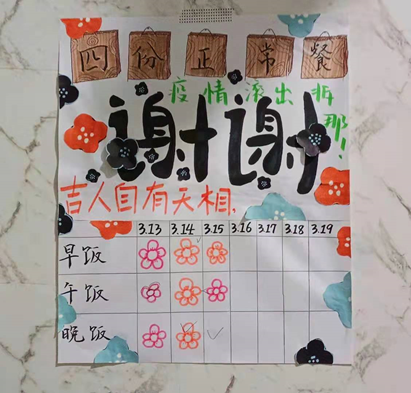 四份正常餐
疫情滚出非那!
谢谢
吉人自有天相.
3.13 3.14 3.15 3.16 3.17 3.18 3.19
早饭
午饭
晚饭